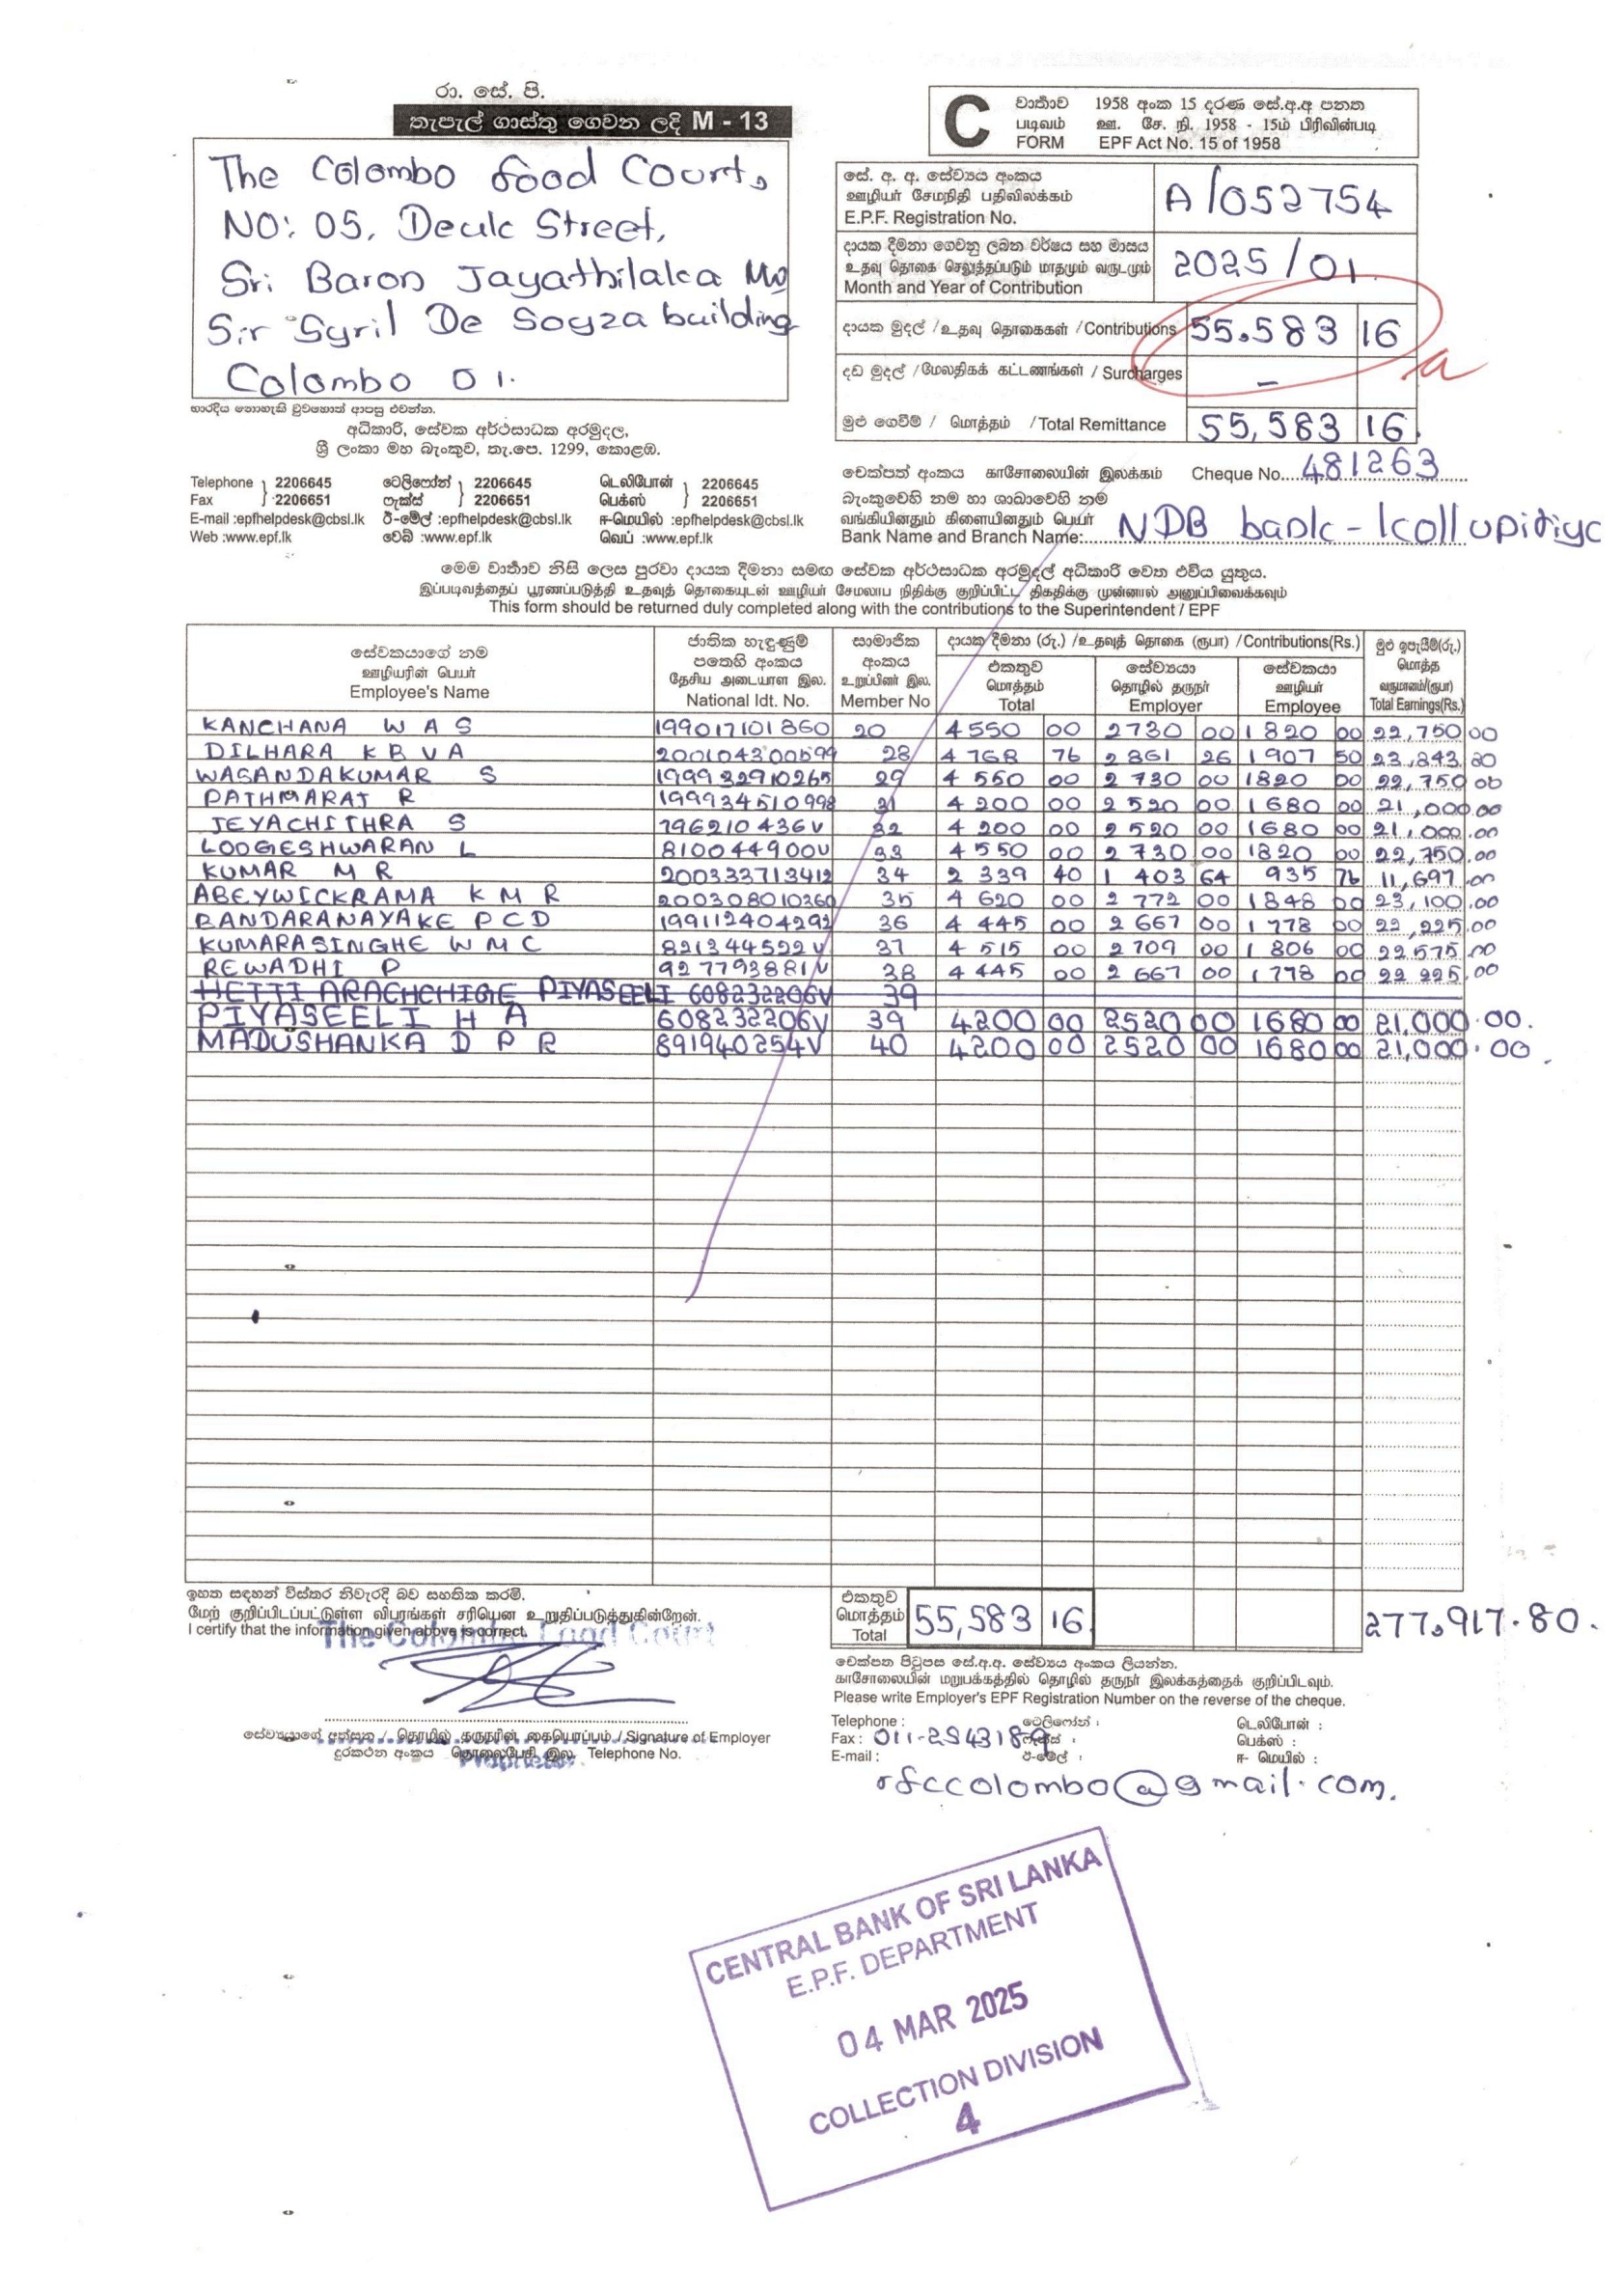 රා. සේ. පි.
තැපැල් ගාස්තු ගෙවන ලදි M - 13
The Colombo food Court,
NO: 05, Deulc Street,
Sri Baron Jayathilaka Mw
Sir Syril De Soyza building
Colombo 01.
භාරදිය නොහැකි වුවහොත් ආපසු එවන්න.
අධිකාරි, සේවක අර්ථසාධක අරමුදල,
ශ්‍රී ලංකා මහ බැංකුව, තැ.පෙ. 1299, කොළඹ.
Telephone } 2206645 ටෙලිෆෝන් } 2206645 டெலிபோன் } 2206645
Fax } 2206651 ෆැක්ස් } 2206651 பெக்ஸ் } 2206651
E-mail :epfhelpdesk@cbsl.lk ඊ-මේල් :epfhelpdesk@cbsl.lk ஈ-மெயில் :epfhelpdesk@cbsl.lk
Web :www.epf.lk වෙබ් :www.epf.lk வெப் :www.epf.lk
C
වාර්තාව 1958 අංක 15 දරණ සේ.අ.අ පනත
படிவம் ஊ. சே. நி. 1958 - 15ம் பிரிவின்படி
FORM EPF Act No. 15 of 1958
සේ. අ. අ. සේව්‍යය අංකය
ஊழியர் சேமநிதி பதிவிலக்கம்
E.P.F. Registration No. A/052754
දායක දීමනා ගෙවනු ලබන වර්ෂය සහ මාසය
உதவு தொகை செலுத்தப்படும் மாதமும் வருடமும்
Month and Year of Contribution 2025/01
දායක මුදල් / உதவு தொகைகள் / Contributions 55,583 16
දඩ මුදල් / மேலதிகக் கட்டணங்கள் / Surcharges –
මුළු ගෙවීම් / மொத்தம் / Total Remittance 55,583 16
චෙක්පත් අංකය காசோலையின் இலக்கம் Cheque No. 481263
බැංකුවෙහි නම හා ශාඛාවෙහි නම
வங்கியினதும் கிளையினதும் பெயர்
Bank Name and Branch Name: NDB bank - kollupitiya
මෙම වාර්තාව නිසි ලෙස පුරවා දායක දීමනා සමඟ සේවක අර්ථසාධක අරමුදල් අධිකාරි වෙත එවිය යුතුය.
இப்படிவத்தைப் பூரணப்படுத்தி உதவுத் தொகையுடன் ஊழியர் சேமலாப நிதிக்கு குறிப்பிட்ட திகதிக்கு முன்னால் அனுப்பிவைக்கவும்
This form should be returned duly completed along with the contributions to the Superintendent / EPF
සේවකයාගේ නම
ஊழியரின் பெயர்
Employee's Name
ජාතික හැඳුණුම්
පතෙහි අංකය
தேசிய அடையாள இல.
National Idt. No.
සාමාජික
අංකය
உறுப்பினர் இல.
Member No
දායක දීමනා (රු.) / உதவுத் தொகை (ரூபா) / Contributions(Rs.)
එකතුව
மொத்தம்
Total
සේව්‍යයා
தொழில் தருநர்
Employer
සේවකයා
ஊழியர்
Employee
මුළු ඉපැයීම්(රු.)
மொத்த
வருமானம்/(ரூபா)
Total Earnings(Rs.)
KANCHANA W A S 199017101860 20 4550 00 2730 00 1820 00 22,750 00
DILHARA K B V A 200104300599 28 4768 76 2861 26 1907 50 23,843.80
WASANDAKUMAR S 199932910265 29 4550 00 2730 00 1820 00 22,750 00
PATHMARAT R 199934510998 31 4200 00 2520 00 1680 00 21,000.00
JEYACHITHRA S 796210436V 32 4200 00 2520 00 1680 00 21,000.00
LOOGESHWARAN L 810044900V 33 4550 00 2730 00 1820 00 22,750.00
KUMAR M R 200333713412 34 2339 40 1403 64 935 76 11,697.00
ABEYWICKRAMA K M R 200308010360 35 4620 00 2772 00 1848 00 23,100.00
BANDARANAYAKE P C D 199112404292 36 4445 00 2667 00 1778 00 22,225.00
KUMARASINGHE W M C 821344522V 37 4515 00 2709 00 1806 00 22,575.00
REWADHI P 927793881V 38 4445 00 2667 00 1778 00 22 225.00
HETTI ARACHCHIGE PIYASEELI 608232206V 39
PIYASEELI H A 608232206V 39 4200 00 2520 00 1680 00 21,000.00.
MADUSHANKA D P R 891940254V 40 4200 00 2520 00 1680 00 21,000.00.
ඉහත සඳහන් විස්තර නිවැරදි බව සහතික කරමි.
மேற் குறிப்பிடப்பட்டுள்ள விபரங்கள் சரியென உறுதிப்படுத்துகின்றேன்.
I certify that the information given above is correct.
The Colombo Food Court
සේව්‍යයාගේ අත්සන / தொழில் தருநரின் கையொப்பம் / Signature of Employer
දුරකථන අංකය தொலைபேசி இல. Telephone No.
Proprietor
එකතුව
மொத்தம்
Total 55,583 16 277,917.80.
චෙක්පත පිටුපස සේ.අ.අ. සේව්‍යය අංකය ලියන්න.
காசோலையின் மறுபக்கத்தில் தொழில் தருநர் இலக்கத்தைக் குறிப்பிடவும்.
Please write Employer's EPF Registration Number on the reverse of the cheque.
Telephone : ටෙලිෆෝන් : டெலிபோன் :
Fax : 011-2943189 ෆැක්ස් : பெக்ஸ் :
E-mail : ඊ-මේල් : ஈ- மெயில் :
rfccolombo@gmail.com.
CENTRAL BANK OF SRI LANKA
E.P.F. DEPARTMENT
04 MAR 2025
COLLECTION DIVISION
4